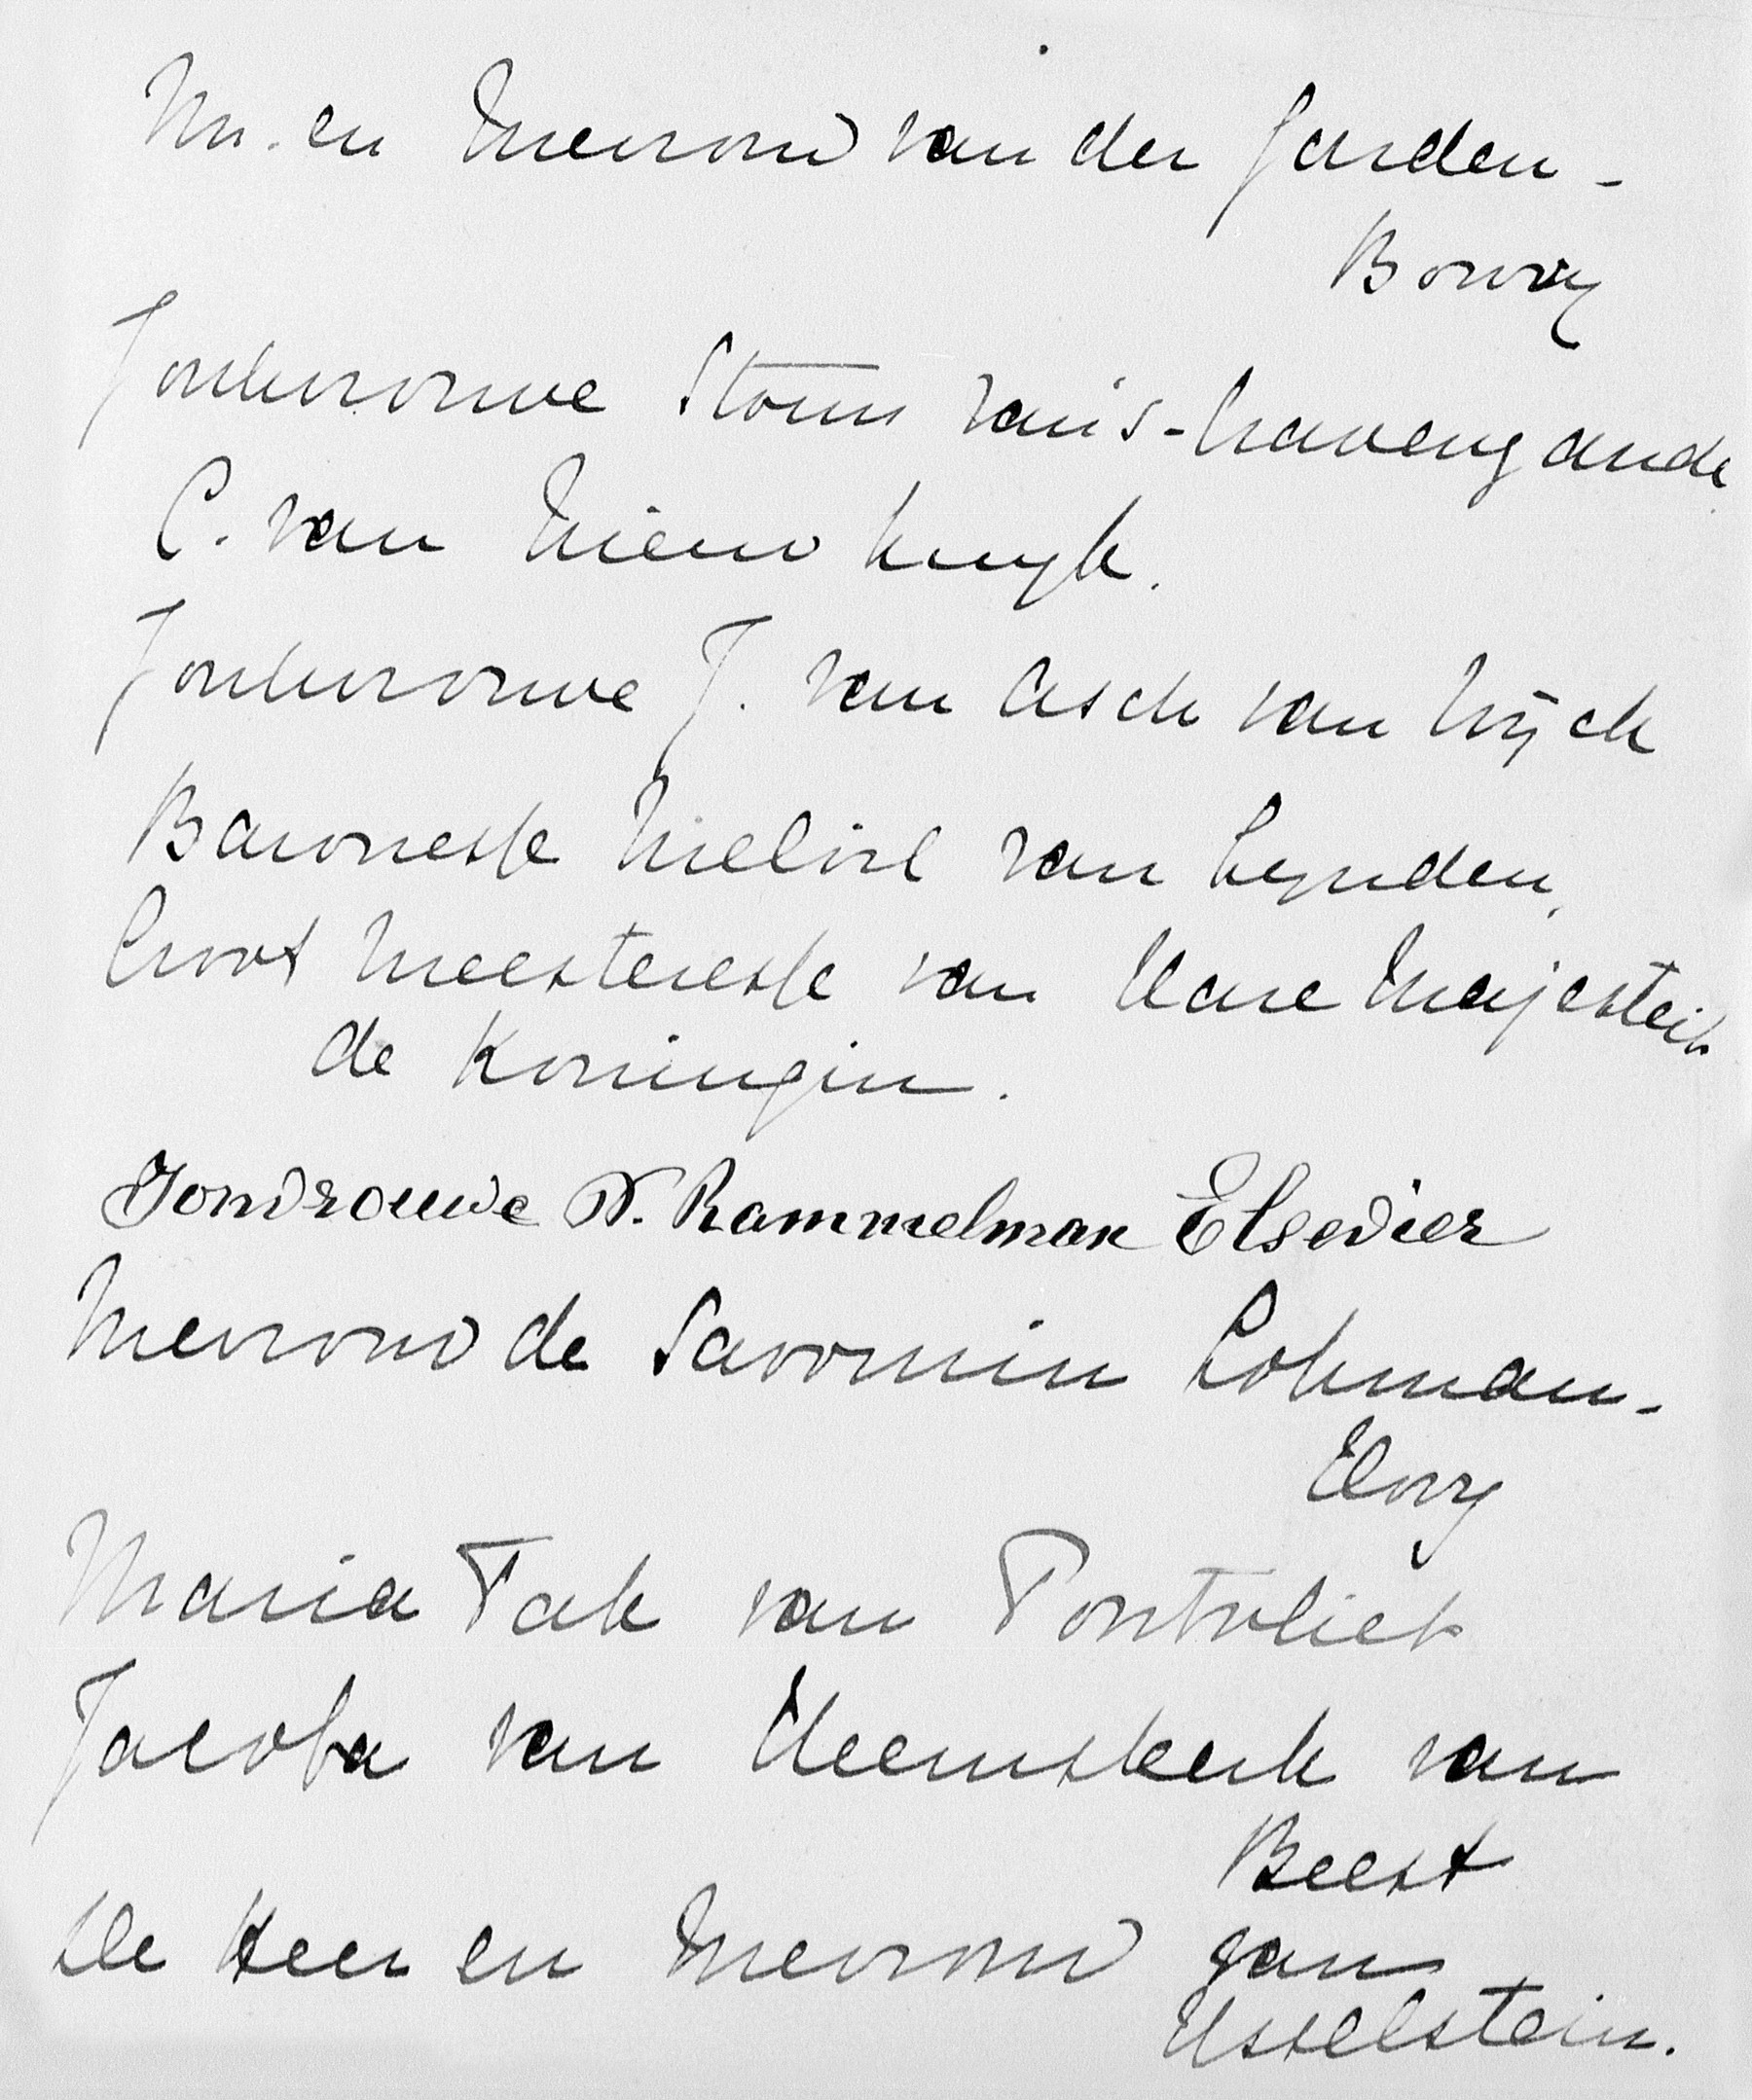 Mr. en Mevrouw van der Jarden-
Bowry
Jonkvrouwe Storm van 's-Gravenzande
C. van Nieuwkuyk.
Jonkvrouwe J. van Asch van Wijck
Baronesse Melvil van Lynden,
Groot Meesteresse van Hare Majesteit
de Koningin.
Jonvrouwe W. Rammelman Elsevier
Mevrouw de Savornin Lohman-
Elory
Maria Tak van Poortvliet
Jacoba van Heemskerk van
Beest
De Heer en Mevrouw van
IJsselstein.